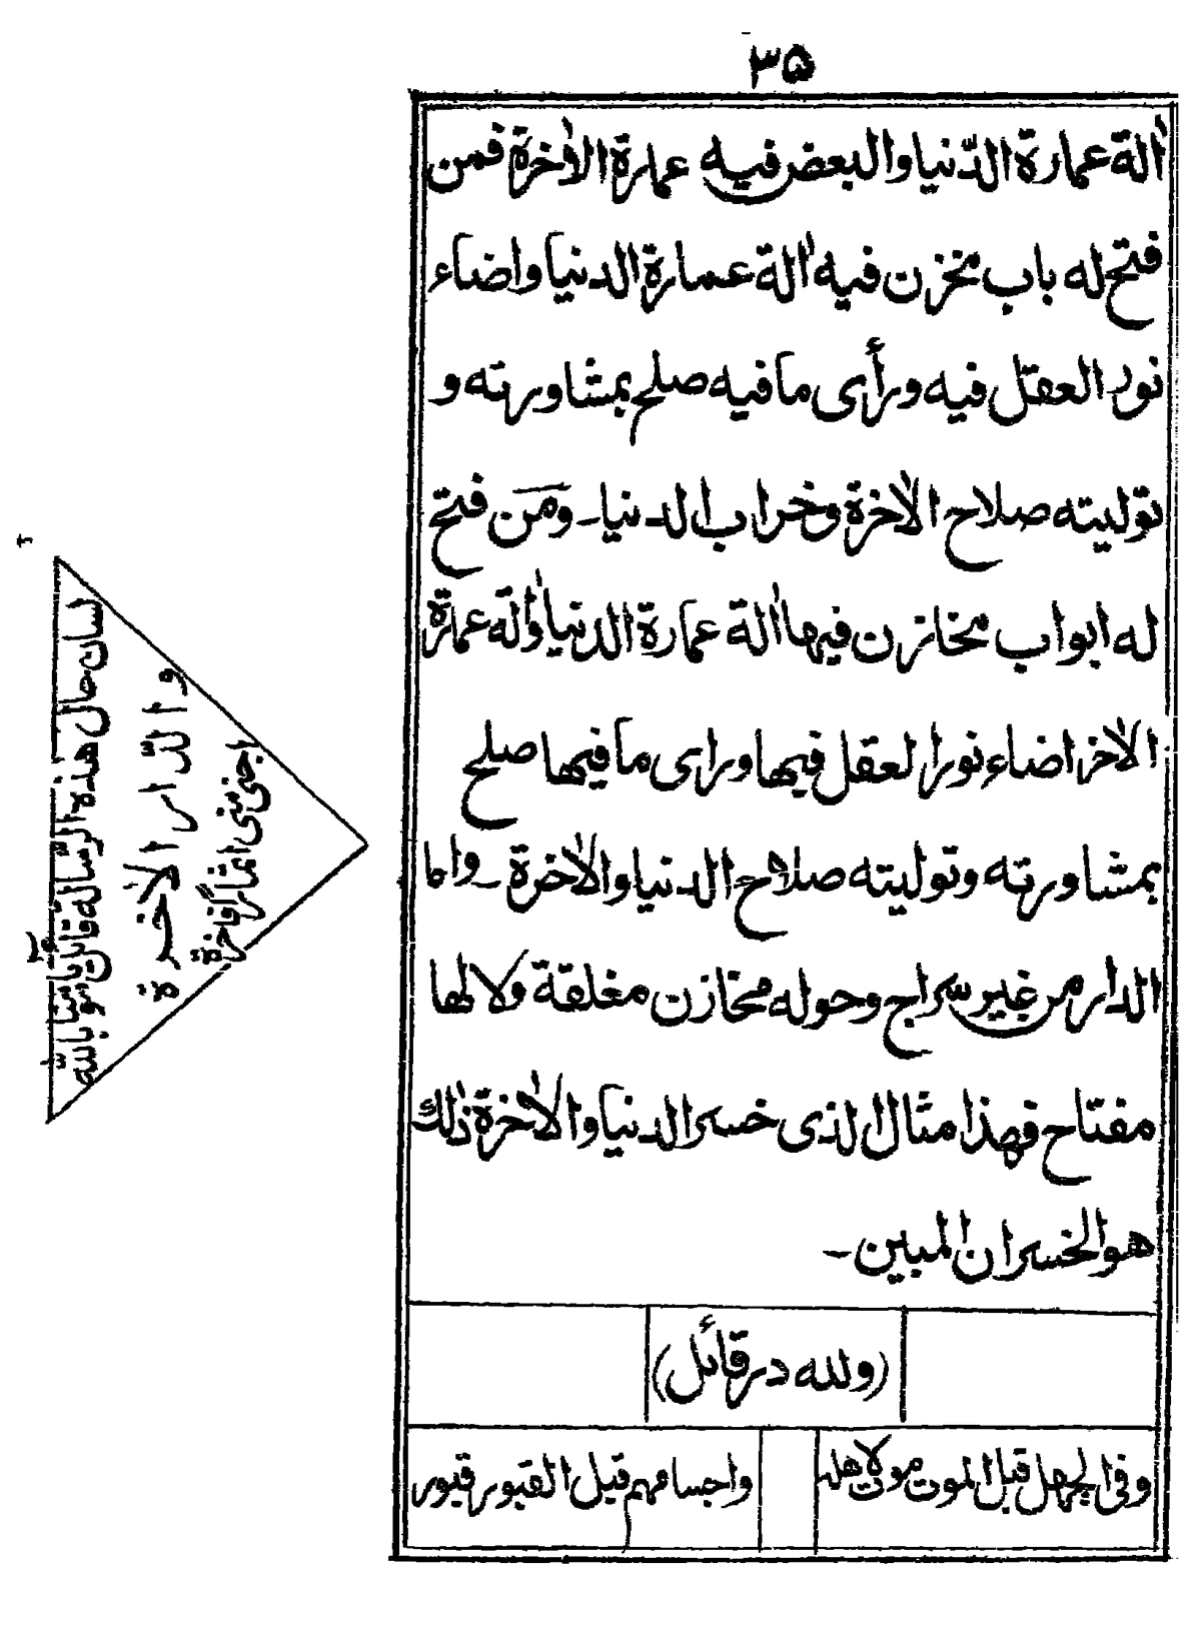 ٣۵
اٰلة عمارة الدّنيا والبعض فيه عمارة الاٰخرة فمن
فتح له باب مخزن فيه اٰلة عمارة الدنيا واضاء
نور العقل فيه ورأى ما فيه صلح بمشاورته و
توليته صلاح الاٰخرة وخراب الدنيا ـ ومَن فتح
له ابواب مخازن فيها اٰلة عمارة الدنيا واٰلة عمارة
الاٰخر اضاء نور العقل فيها وراى ما فيها صلح
بمشاورته وتوليته صلاح الدنيا والاٰخرة ـ واما
الدار من غير سراج وحوله مخازن مغلقة ولا لها
مفتاح فهذا مثال الذى خسر الدنيا والاٰخرة ذٰلك
هو الخسران المبين ـ
(ولله در قائل)
وفى الجهل قبل الموت موت لاهله
واجسامهم قبل القبور قبور
لسان حال هذه الرّسالة قائل يا
والدّار الاٰخرة
اجنى منى اثمار فاخرة